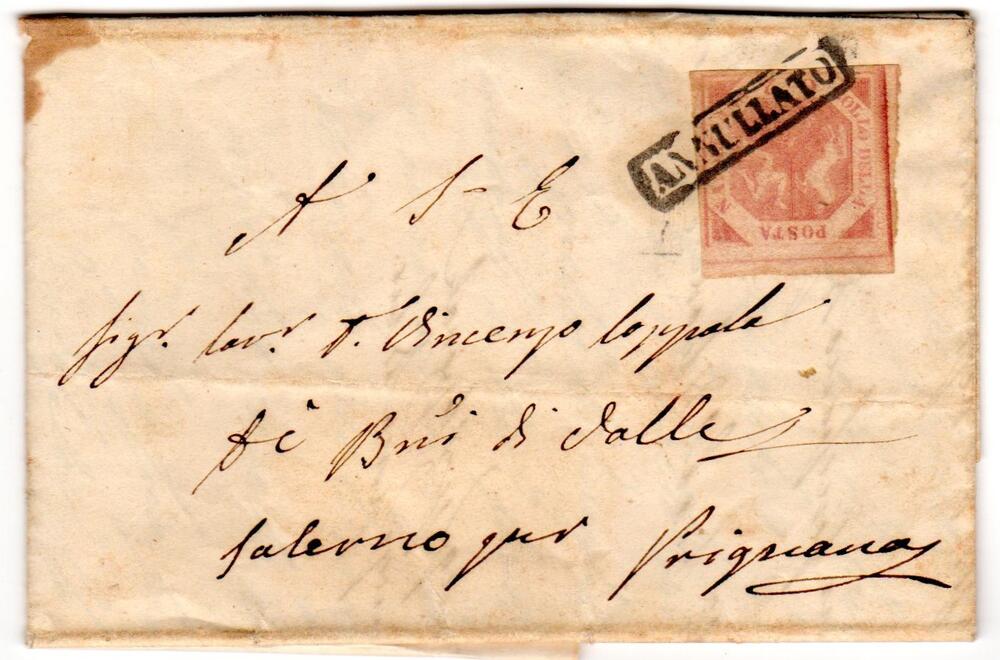 ANNULLATO
BOLLO DELLA
POSTA
NA
A S. E.
Sigr. Cavr. D. Vincenzo Coppola
de Bni di Valle
Salerno per Prignano